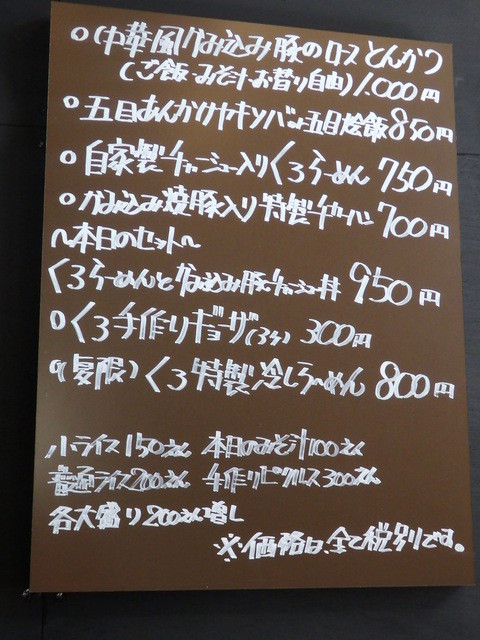 ○中華風なみ込み豚のロースとんかつ
(ご飯・みそ汁お替り自由)1,000円
○五目あんかけヤキソバor五目燴飯850円
○自家製チャーシュー入りくろらーめん 750円
○なみ込み焼豚入り特製チャーハン 700円
〜本日のセット〜
くろらーめんとなみ込み豚チャーシュー丼 950円
○くろ手作りギョーザ(3ケ) 300円
○(夏限)くろ特製冷しらーめん 800円
小ライス150えん 本日のみそ汁100えん
普通ライス200えん 手作りピクルス300えん
各大盛り200えん増し
※価格は、全て税別です。